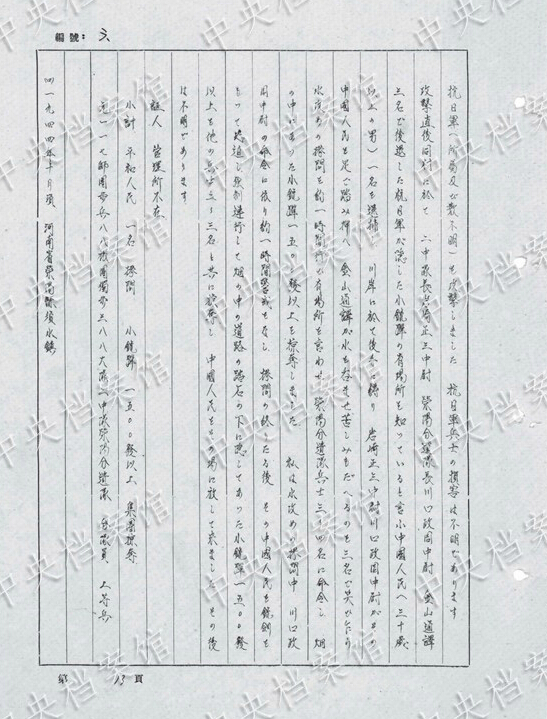 編號：六
抗日軍（所属及び数不明）を攻撃しました 抗日軍兵士の損害は不明であります
攻撃直後同村に於て 二中隊長岩崎正三中尉 栄陽分遣隊長川口政固中尉 金山通譯
三名で後送した抗日軍が隠した小銃弾の有場所を知っていると言ふ中國人民（三十歳
以上の男）一名を逮捕 川岸に於て後手に縛り 岩崎正三中尉川口政固中尉がその
中國人民を足で踏み押へ 金山通譯が水を呑ませ苦しみもだへるのを三名で
水攻めの拷問を約一時間 有場所を言わせ 栄陽分遣隊兵士三、四名に命令し 畑
の中にあった小銃弾一五〇〇發以上を掠奪しました 私は水攻めの拷問中 川口政
固中尉の命令に依り約一時間警戒をなし 拷問の終したる後 その中國人民を銃剣を
もって 強制連行して畑の中の道路の踏石の下に隠してあった小銃弾一五〇〇發
以上を他の兵士二、三名と共に掠奪し 中國人民をその場に放して来ました その後
は不明であります
証人 管理所不在
小計 平和人民 一名 拷問 小銃弾 一五〇〇發以上 集團掠奪
第一一七師團歩兵八七旅團獨歩三八八大隊一中隊栄陽分遣隊 分隊員 上等兵
(四)一九四四年十月頃 河南省栄陽縣須水鎮
第 13 頁
中央档案馆